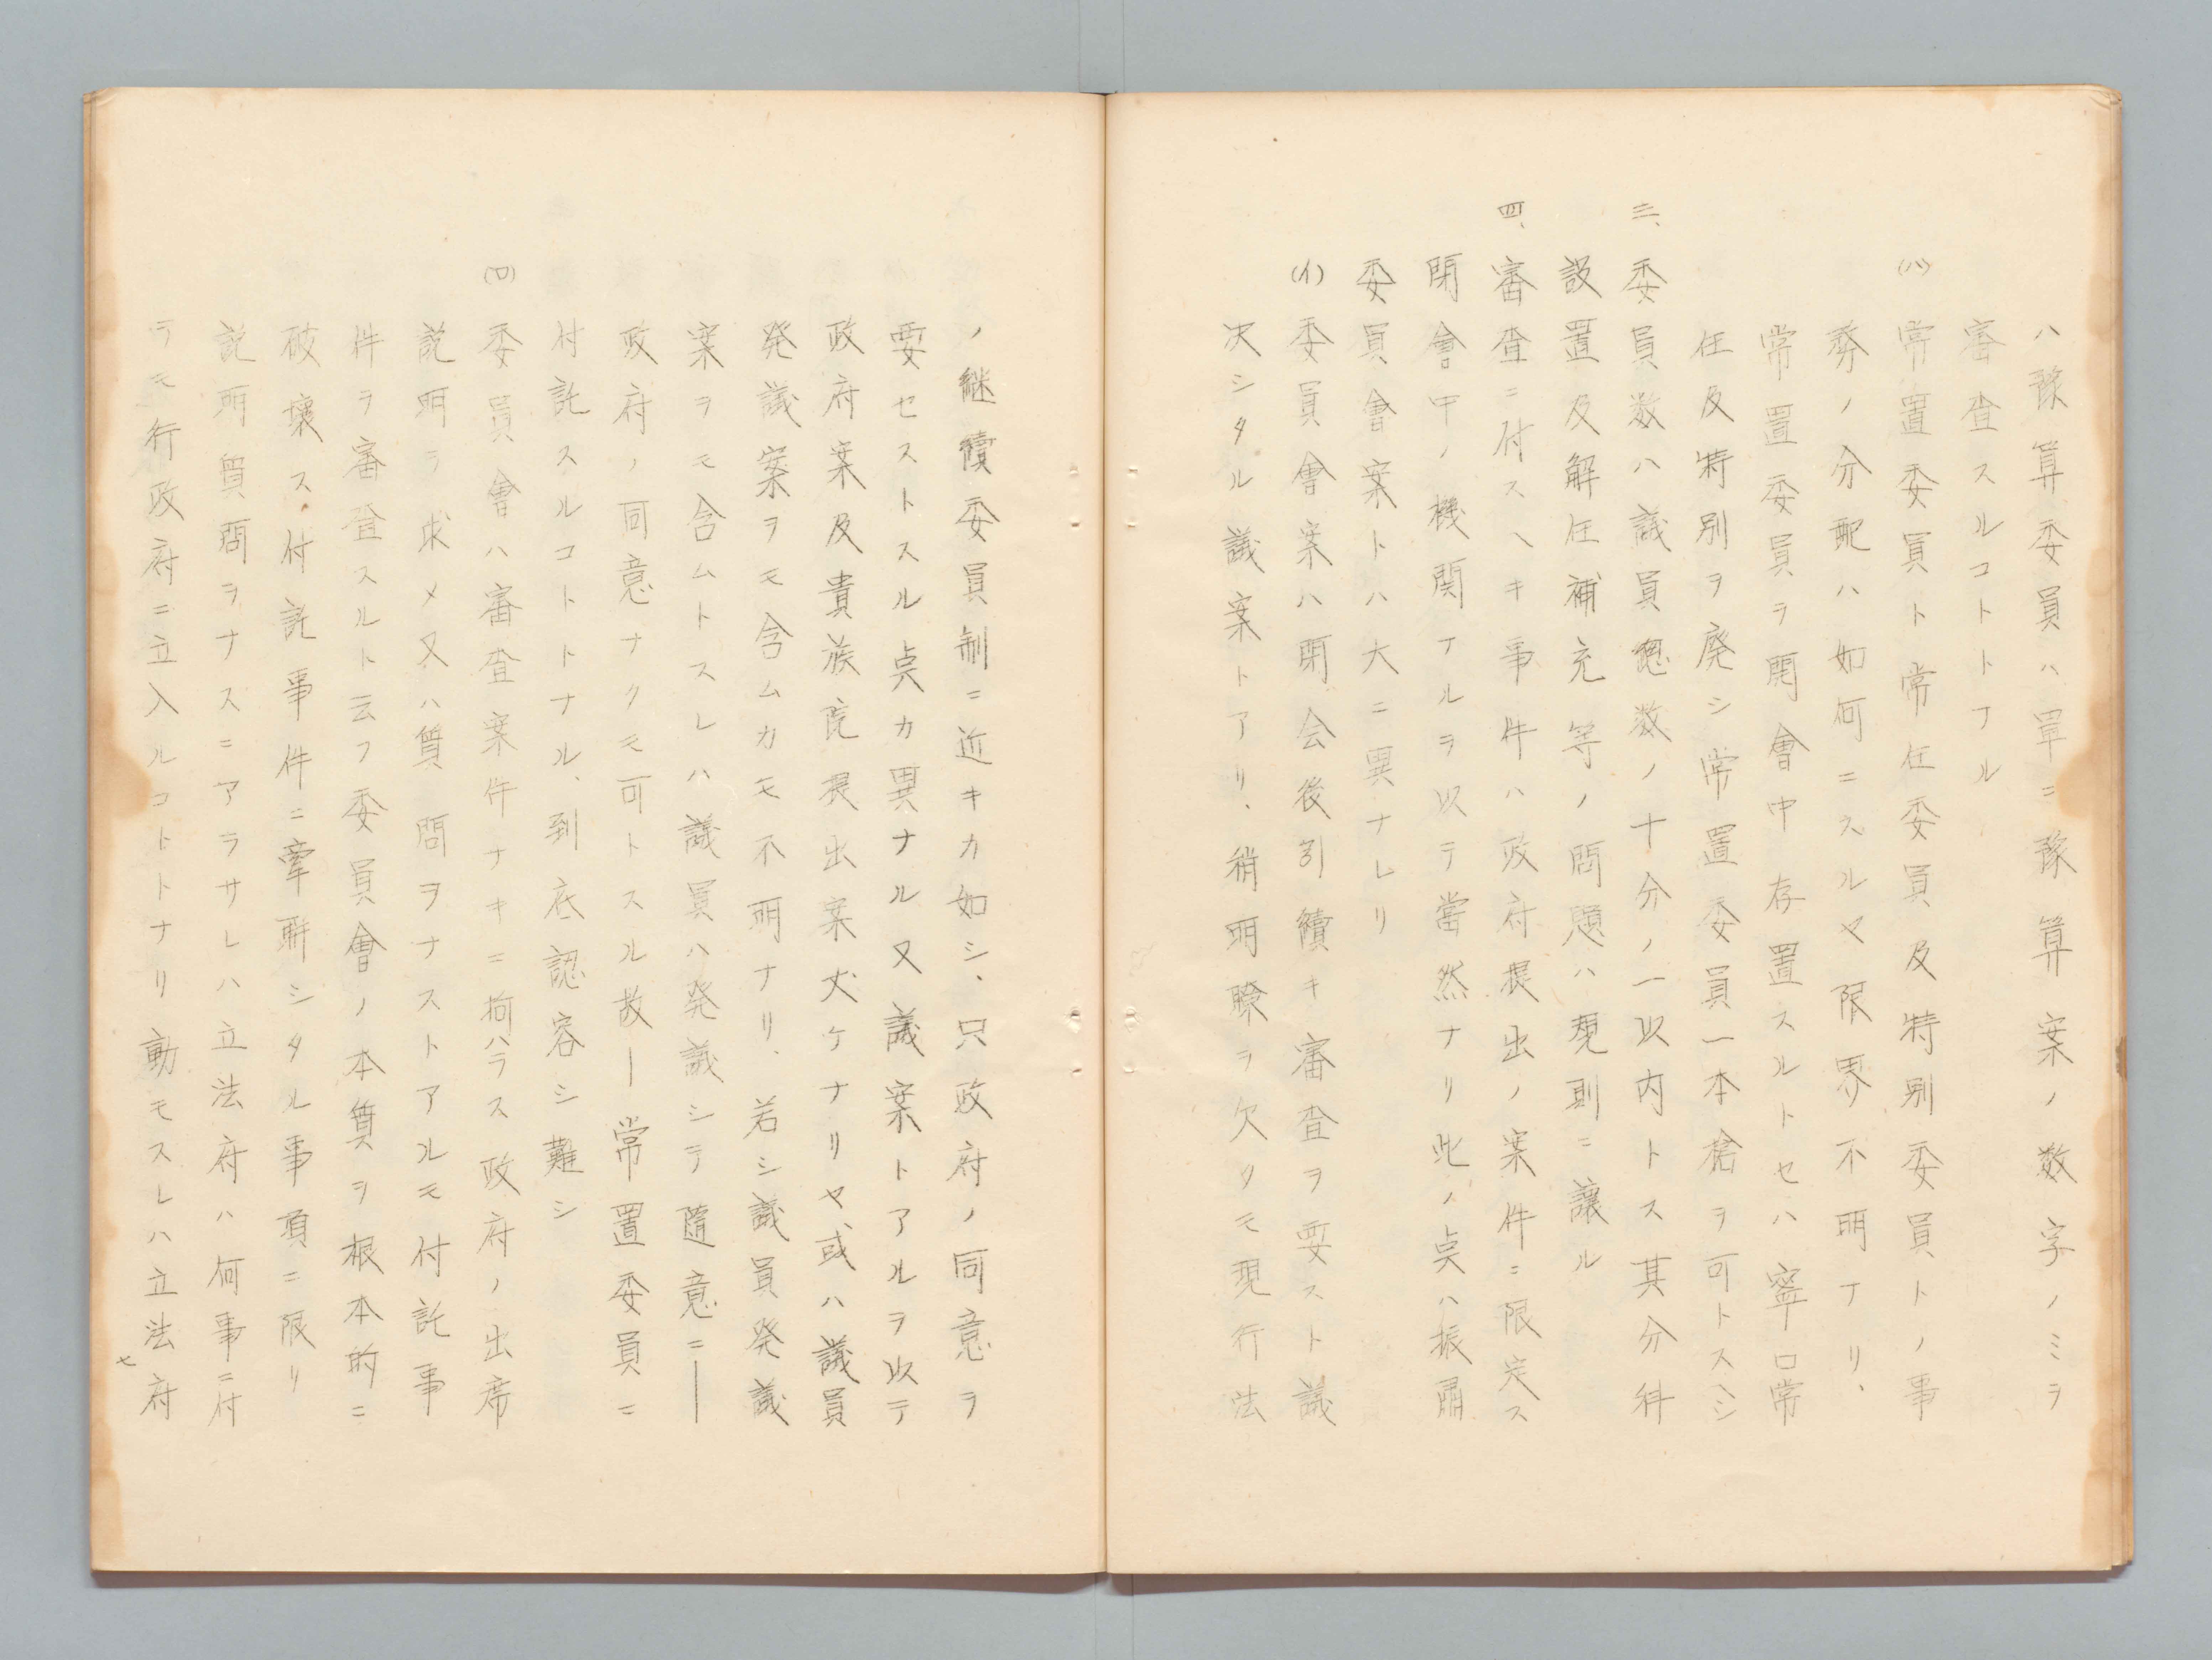 ハ豫算委員ハ単ニ豫算案ノ数字ノミヲ
審査スルコトトナル
(ハ)常置委員ト常任委員及特別委員トノ事
務ノ分配ハ如何ニスルヤ限界不明ナリ、
常置委員ヲ開會中存置スルトセハ寧ロ常
任及特別ヲ廃シ常置委員一本槍ヲ可トスヘシ
三、委員数ハ議員総数ノ十分ノ一以内トス其分科
設置及解任補充等ノ問題ハ現則ニ譲ル
四、審査ニ付スヘキ事件ハ政府提出ノ案件ニ限定ス
閉會中ノ機関ナルヲ以テ當然ナリ此ノ点ハ振粛
委員會案トハ大ニ異ナレリ
(イ)委員會案ハ閉会後引續キ審査ヲ要スト議
決シタル議案トアリ、稍明瞭ヲ欠クモ現行法
ノ継續委員制ニ近キカ如シ、只政府ノ同意ヲ
要セストスル点カ異ナル又議案トアルヲ以テ
政府案及貴族院提出案丈ケナリヤ、或ハ議員
発議案ヲモ含ムカモ不明ナリ、若シ議員発議
案ヲモ含ムトスレハ議員ハ発議シテ随意ニ―
政府ノ同意ナクモ可トスル故―常置委員ニ
付託スルコトトナル、到底認容シ難シ
(ロ)委員會ハ審査案件ナキニ拘ハラス政府ノ出席
説明ヲ求メ又ハ質問ヲナストアルモ付託事
件ヲ審査スルト云フ委員會ノ本質ヲ根本的ニ
破壊ス、付託事件ニ牽聯シタル事項ニ限リ
説明質問ヲナスニアラサレハ立法府ハ何事ニ付
ラモ行政府ニ立入ルコトトナリ動モスレハ立法府
七